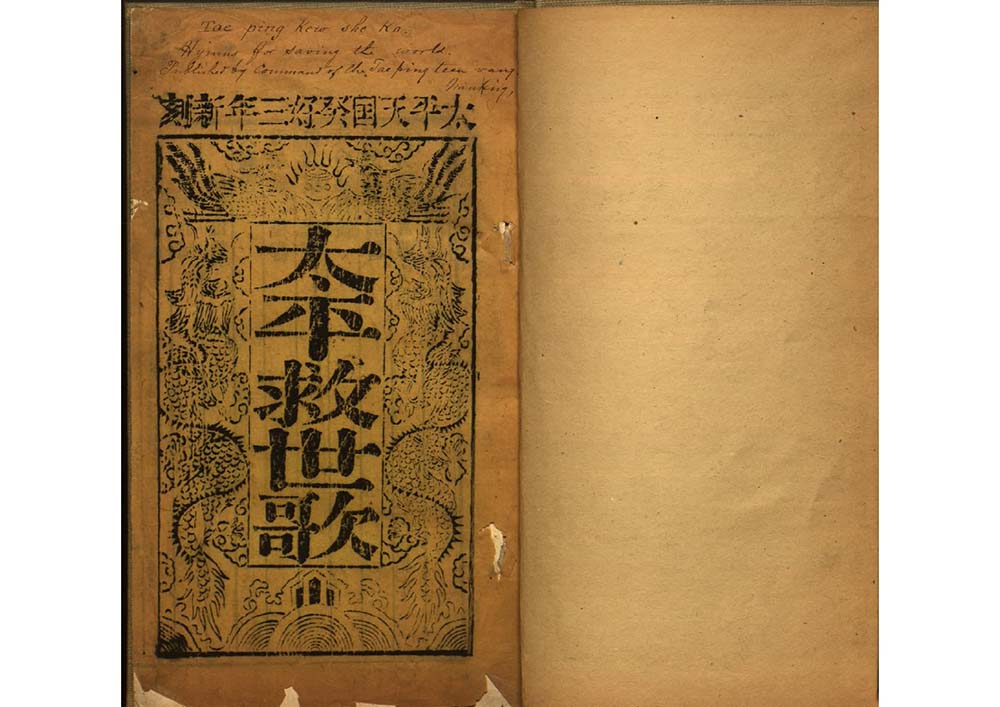 Tae ping Kew she Ko.
Hymns for saving the world.
Published by Command of the Tae ping teen wang
Nanking,
太平天囯癸好三年新刻
太平救世歌